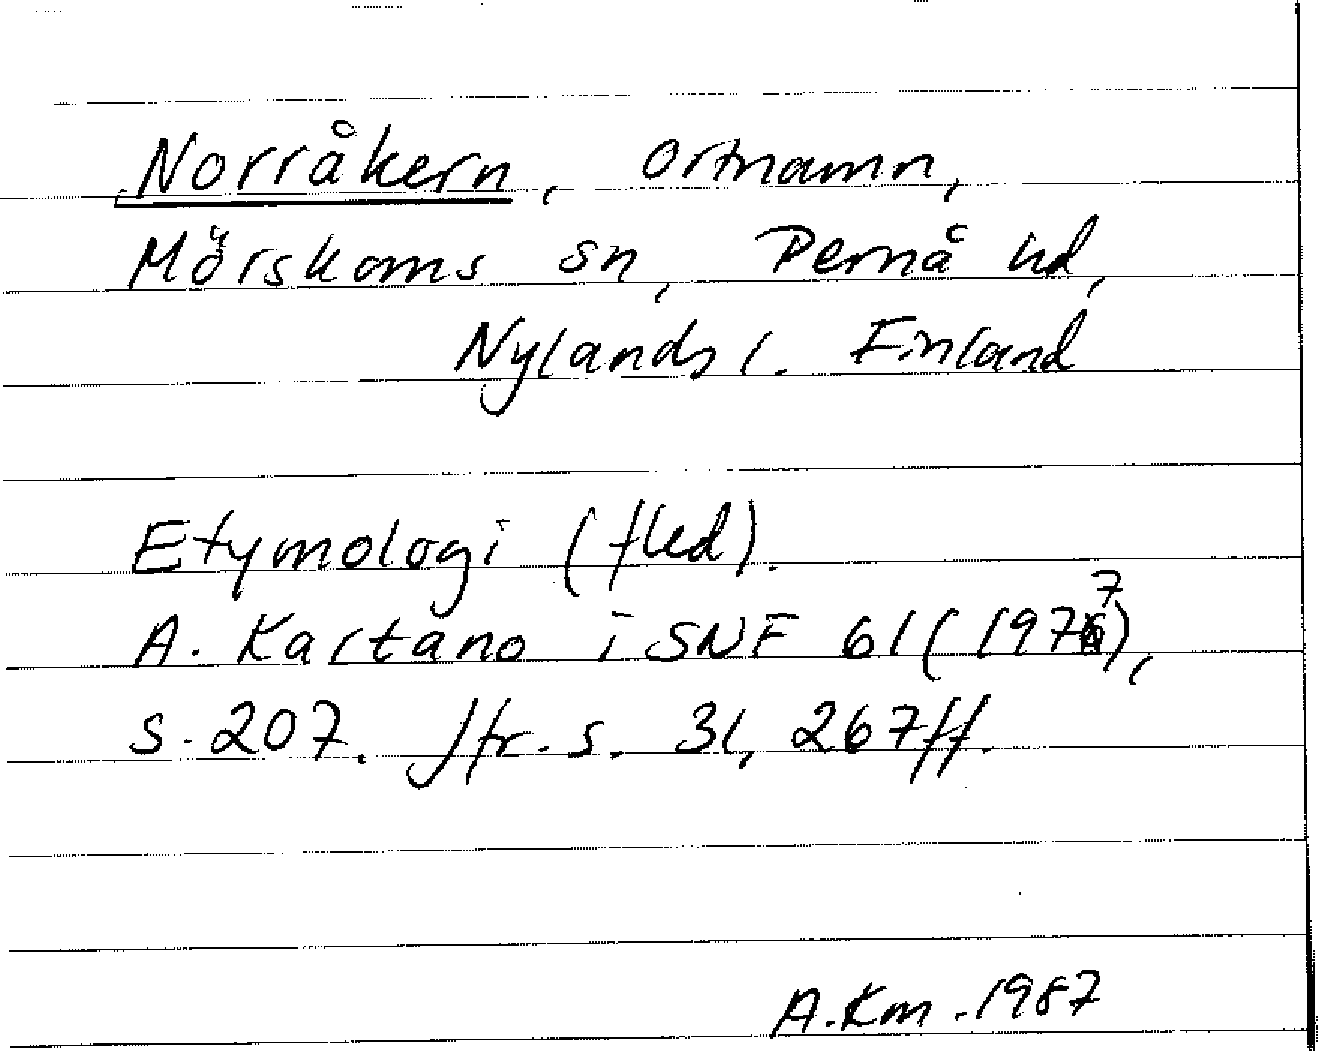 Norråkern, ortnamn,
Mörskoms sn, Pernå hd,
Nylands l. Finland
Etymologi (fled).
A. Kartano i SNF 61 (1977),
s. 207. Jfr. s. 31, 267ff.
A.Km. 1987